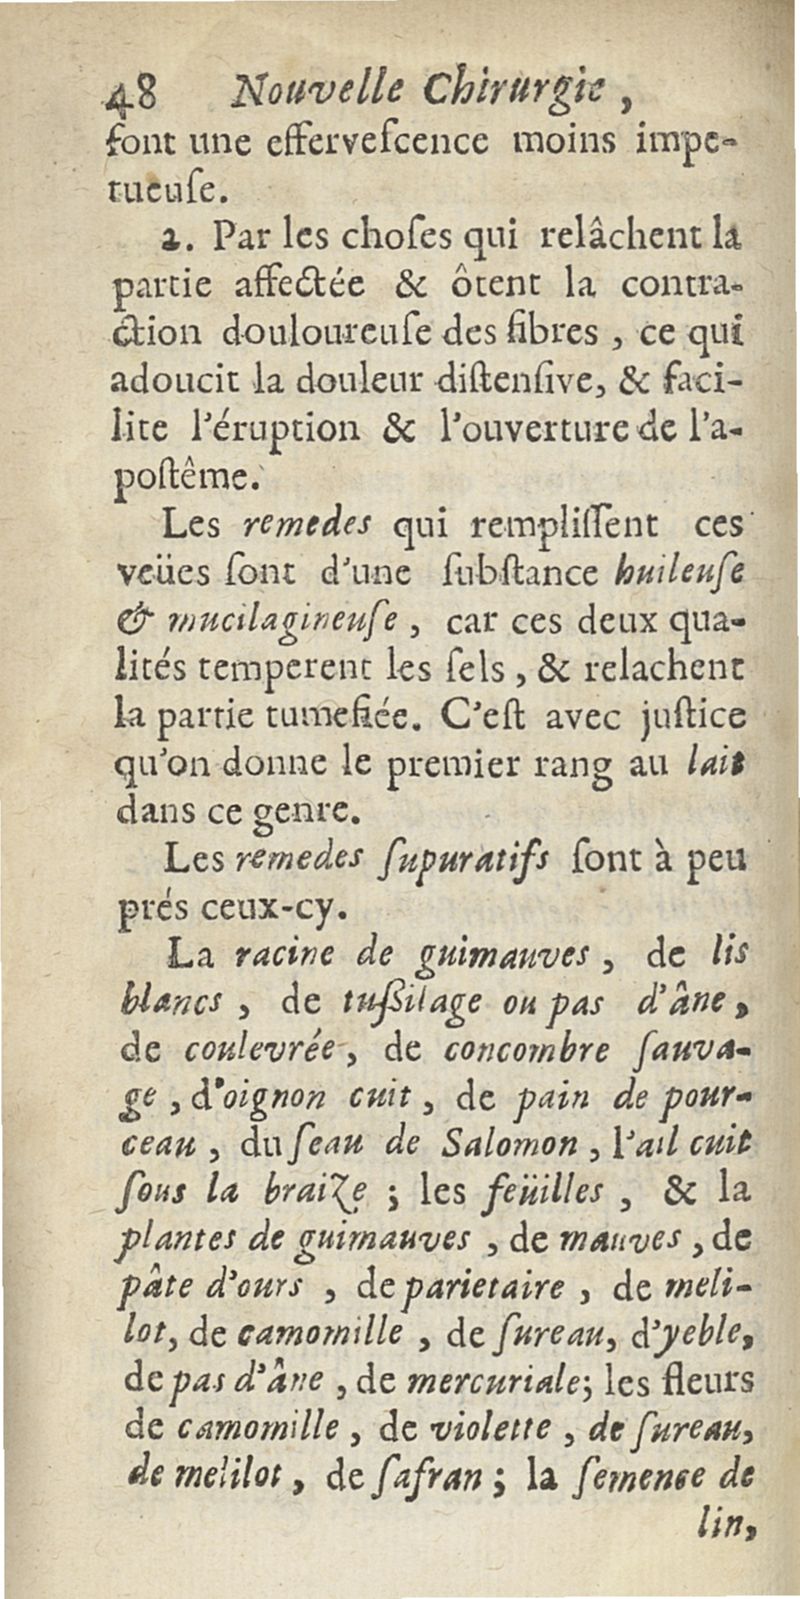 48 Nouvelle Chirurgie ,
font une efferveſcence moins impe-
tueuſe.
2. Par les choſes qui relâchent la
partie affectée & ôtent la contra-
ction douloureuſe des fibres , ce qui
adoucit la douleur diſtenſive, & faci-
lite l'éruption & l'ouverture de l'a-
poſtême.
Les remedes qui rempliſſent ces
veües ſont d'une ſubſtance huileuſe
& mucilagineuſe , car ces deux qua-
lités temperent les ſels , & relachent
la partie tumefiée. C'eſt avec juſtice
qu'on donne le premier rang au lait
dans ce genre.
Les remedes ſupuratifs ſont à peu
prés ceux-cy.
La racine de guimauves , de lis
blancs , de tuſſilage ou pas d'âne ,
de coulevrée , de concombre ſauva-
ge , d'oignon cuit , de pain de pour-
ceau , du ſeau de Salomon , l'ail cuit
ſous la braize ; les feüilles , & la
plantes de guimauves , de mauves , de
pâte d'ours , de parietaire , de meli-
lot, de camomille , de ſureau, d'yeble,
de pas d'âne , de mercuriale; les fleurs
de camomille , de violette , de ſureau,
de melilot , de ſafran ; la ſemence de
lin,